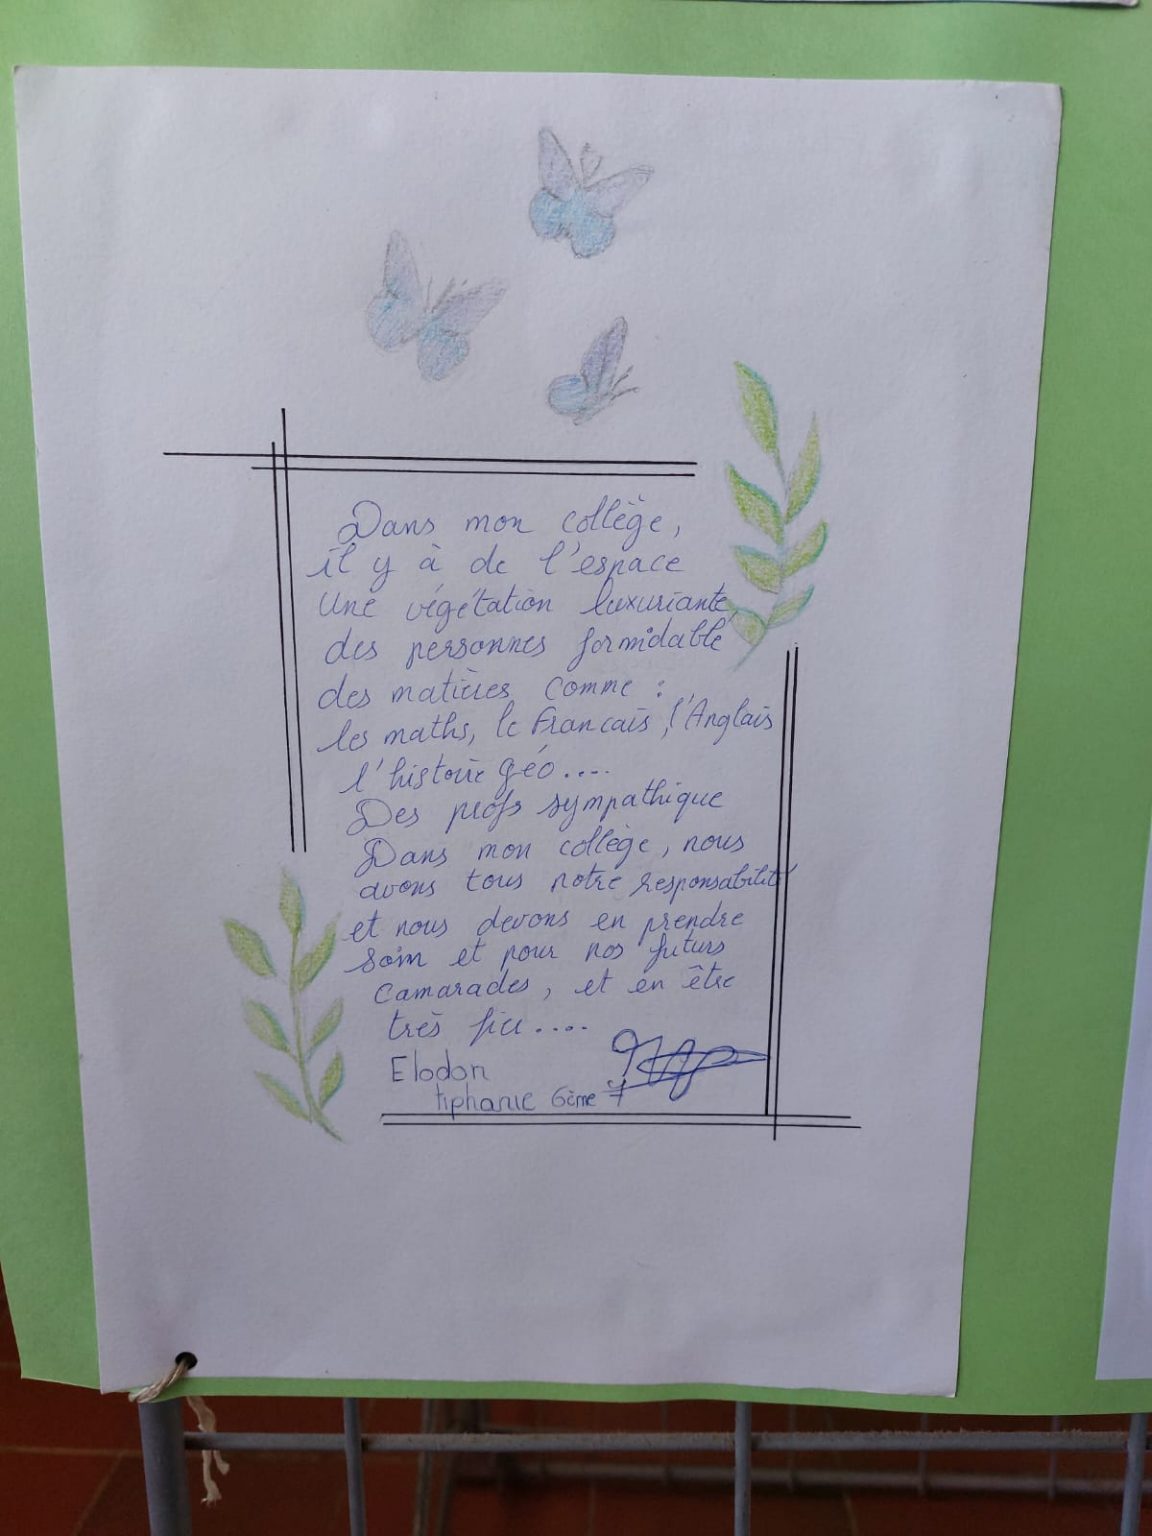 Dans mon collège,
il y à de l'espace
Une végétation luxuriante,
des personnes formidable
des matières comme :
les maths, le Francais, l'Anglais
l'histoire géo....
Des profs sympathique
Dans mon collège, nous
avons tous notre responsabilité
et nous devons en prendre
soin et pour nos futurs
camarades, et en être
très fier....
Elodon
tiphanie 6ème 7